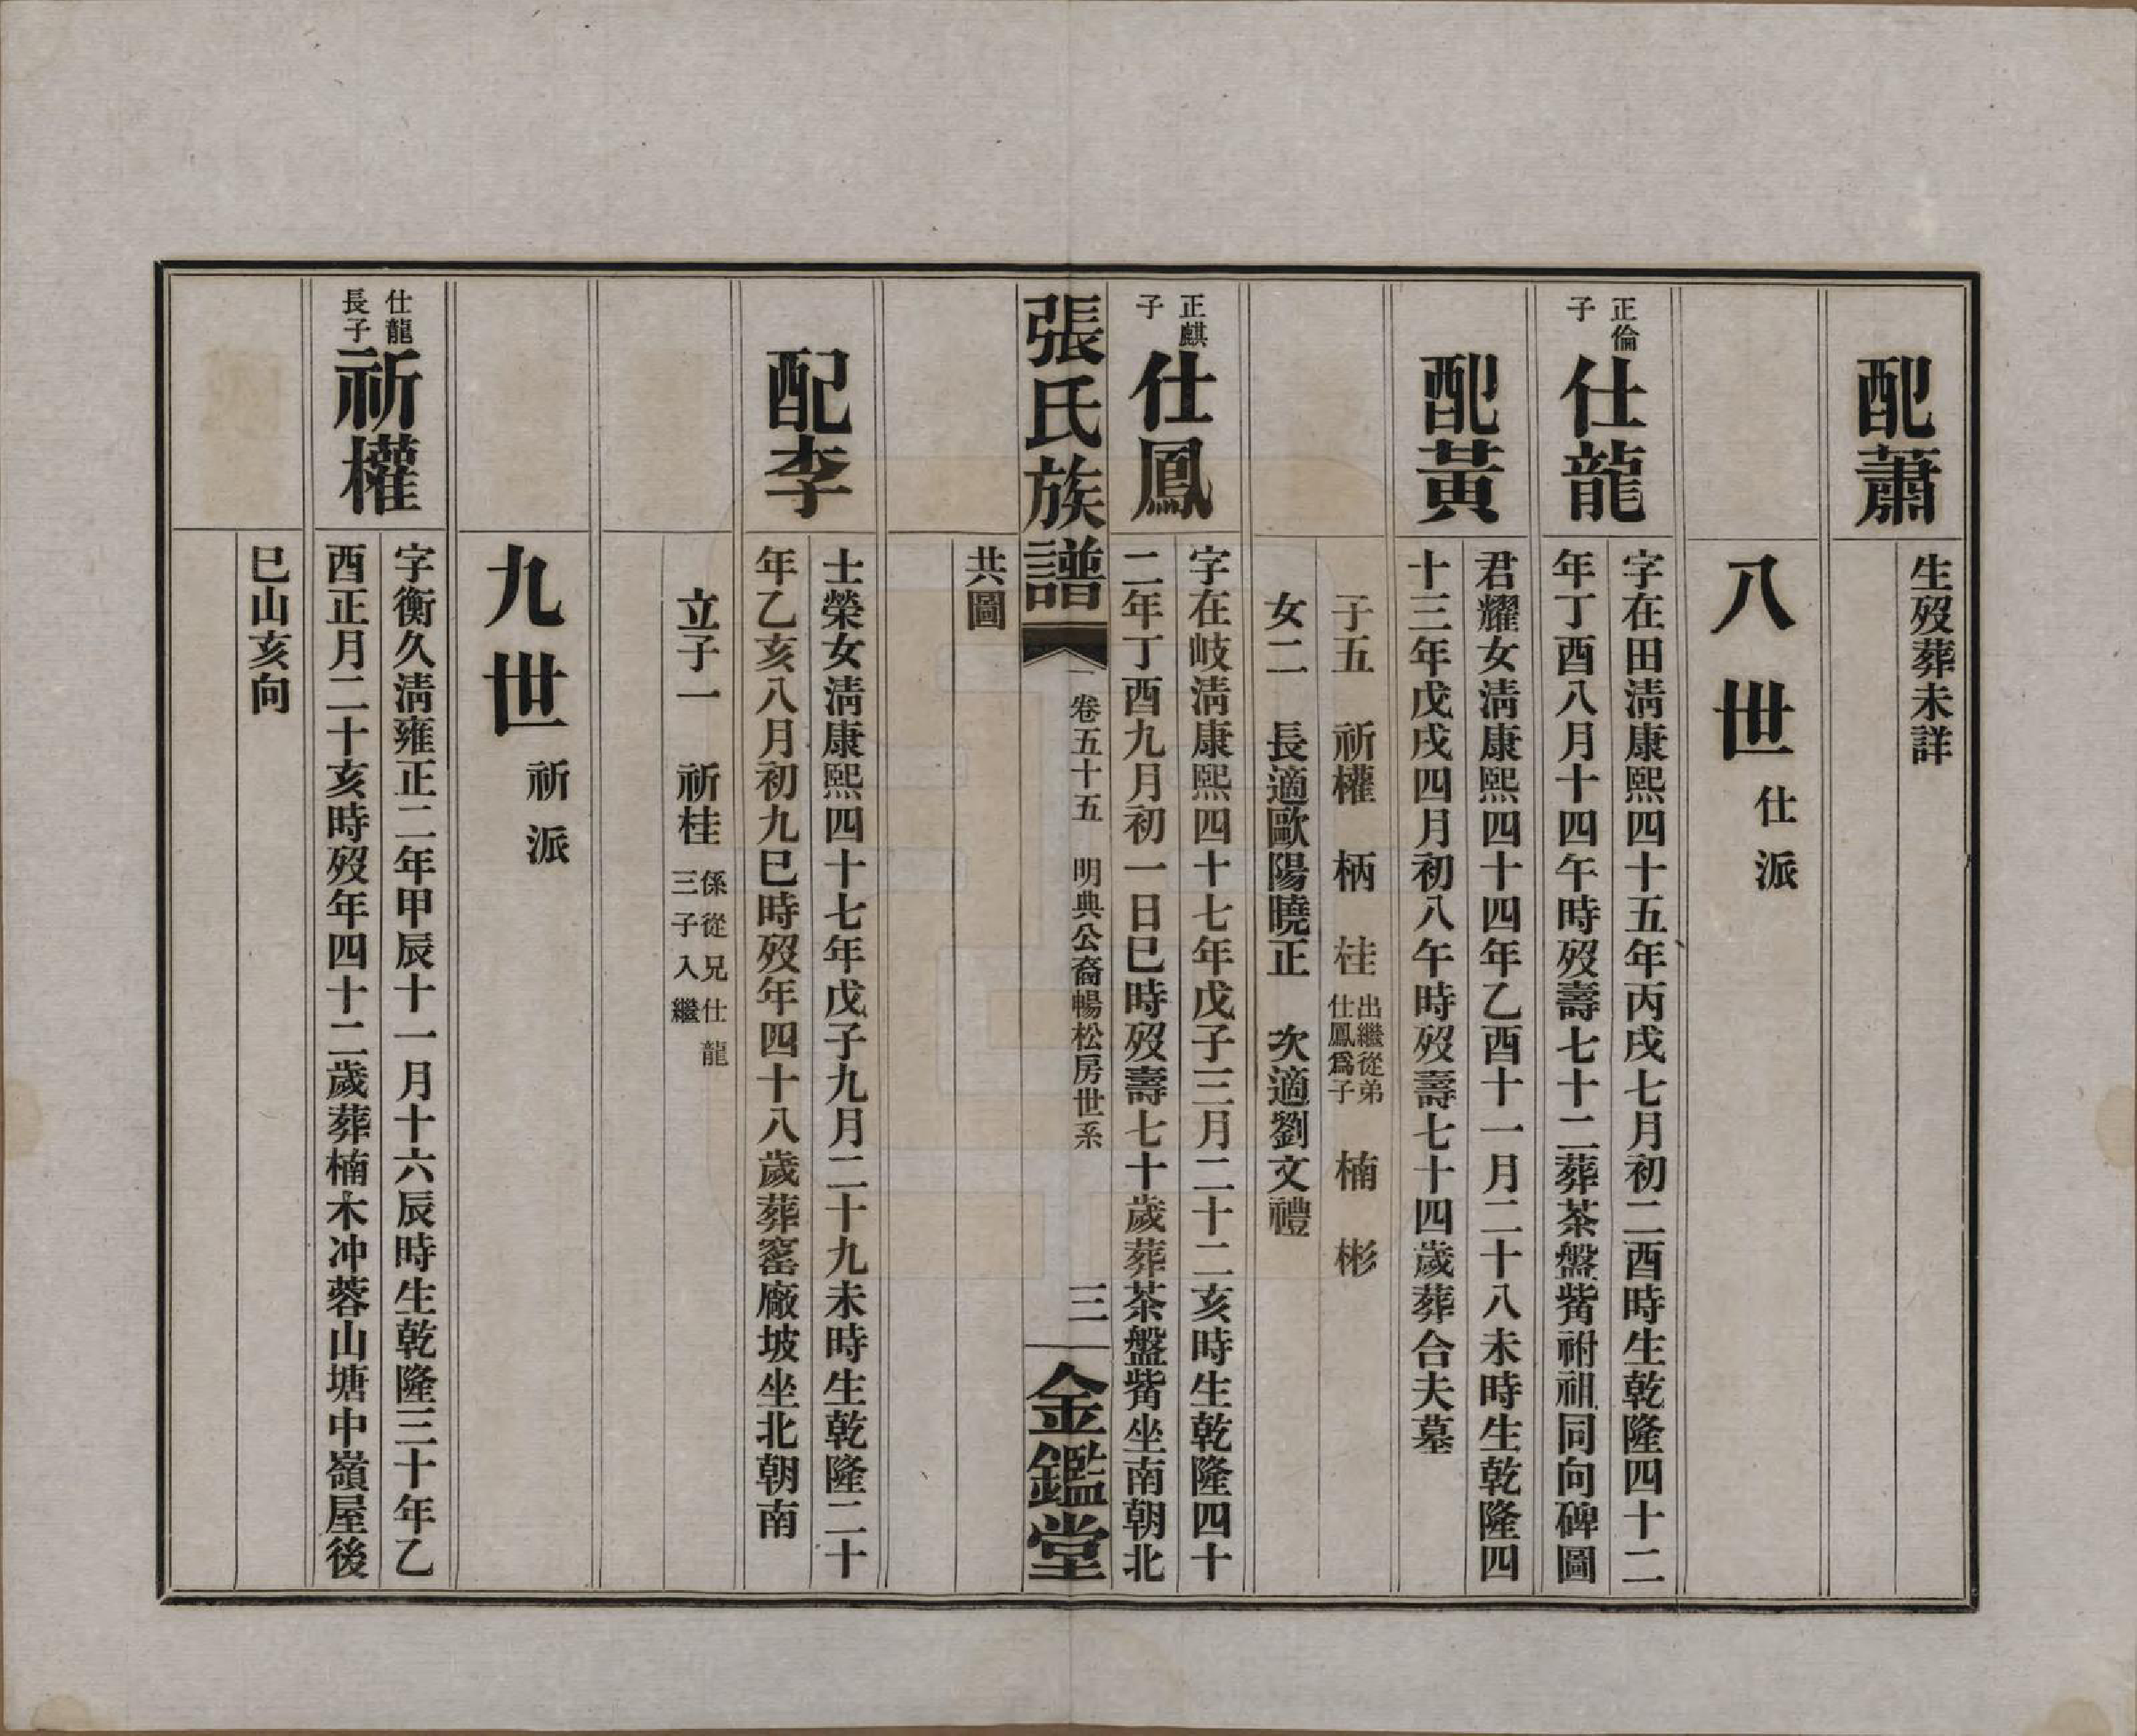 配蕭
生歿葬未詳
八世 仕派
正倫子
仕龍
字在田淸康熙四十五年丙戌七月初二酉時生乾隆四十二
年丁酉八月十四午時歿壽七十二葬茶盤胔祔祖同向碑圖
配黃
君耀女淸康熙四十四年乙酉十一月二十八未時生乾隆四
十三年戊戌四月初八午時歿壽七十四歲葬合夫墓
子五 祈權 柄 桂 出繼從弟仕鳳爲子 楠 彬
女二 長適歐陽曉正 次適劉文禮
正麒子
仕鳳
字在岐淸康熙四十七年戊子三月二十二亥時生乾隆四十
二年丁酉九月初一日巳時歿壽七十歲葬茶盤胔坐南朝北
張氏族譜
卷五十五 明典公裔暢松房世系
三
金鑑堂
共圖
配李
士榮女淸康熙四十七年戊子九月二十九未時生乾隆二十
年乙亥八月初九巳時歿年四十八歲葬窰廠坡坐北朝南
立子一 祈桂 係從兄仕龍三子入繼
九世 祈派
仕龍長子
祈權
字衡久淸雍正二年甲辰十一月十六辰時生乾隆三十年乙
酉正月二十亥時歿年四十二歲葬楠木冲蓉山塘中嶺屋後
巳山亥向